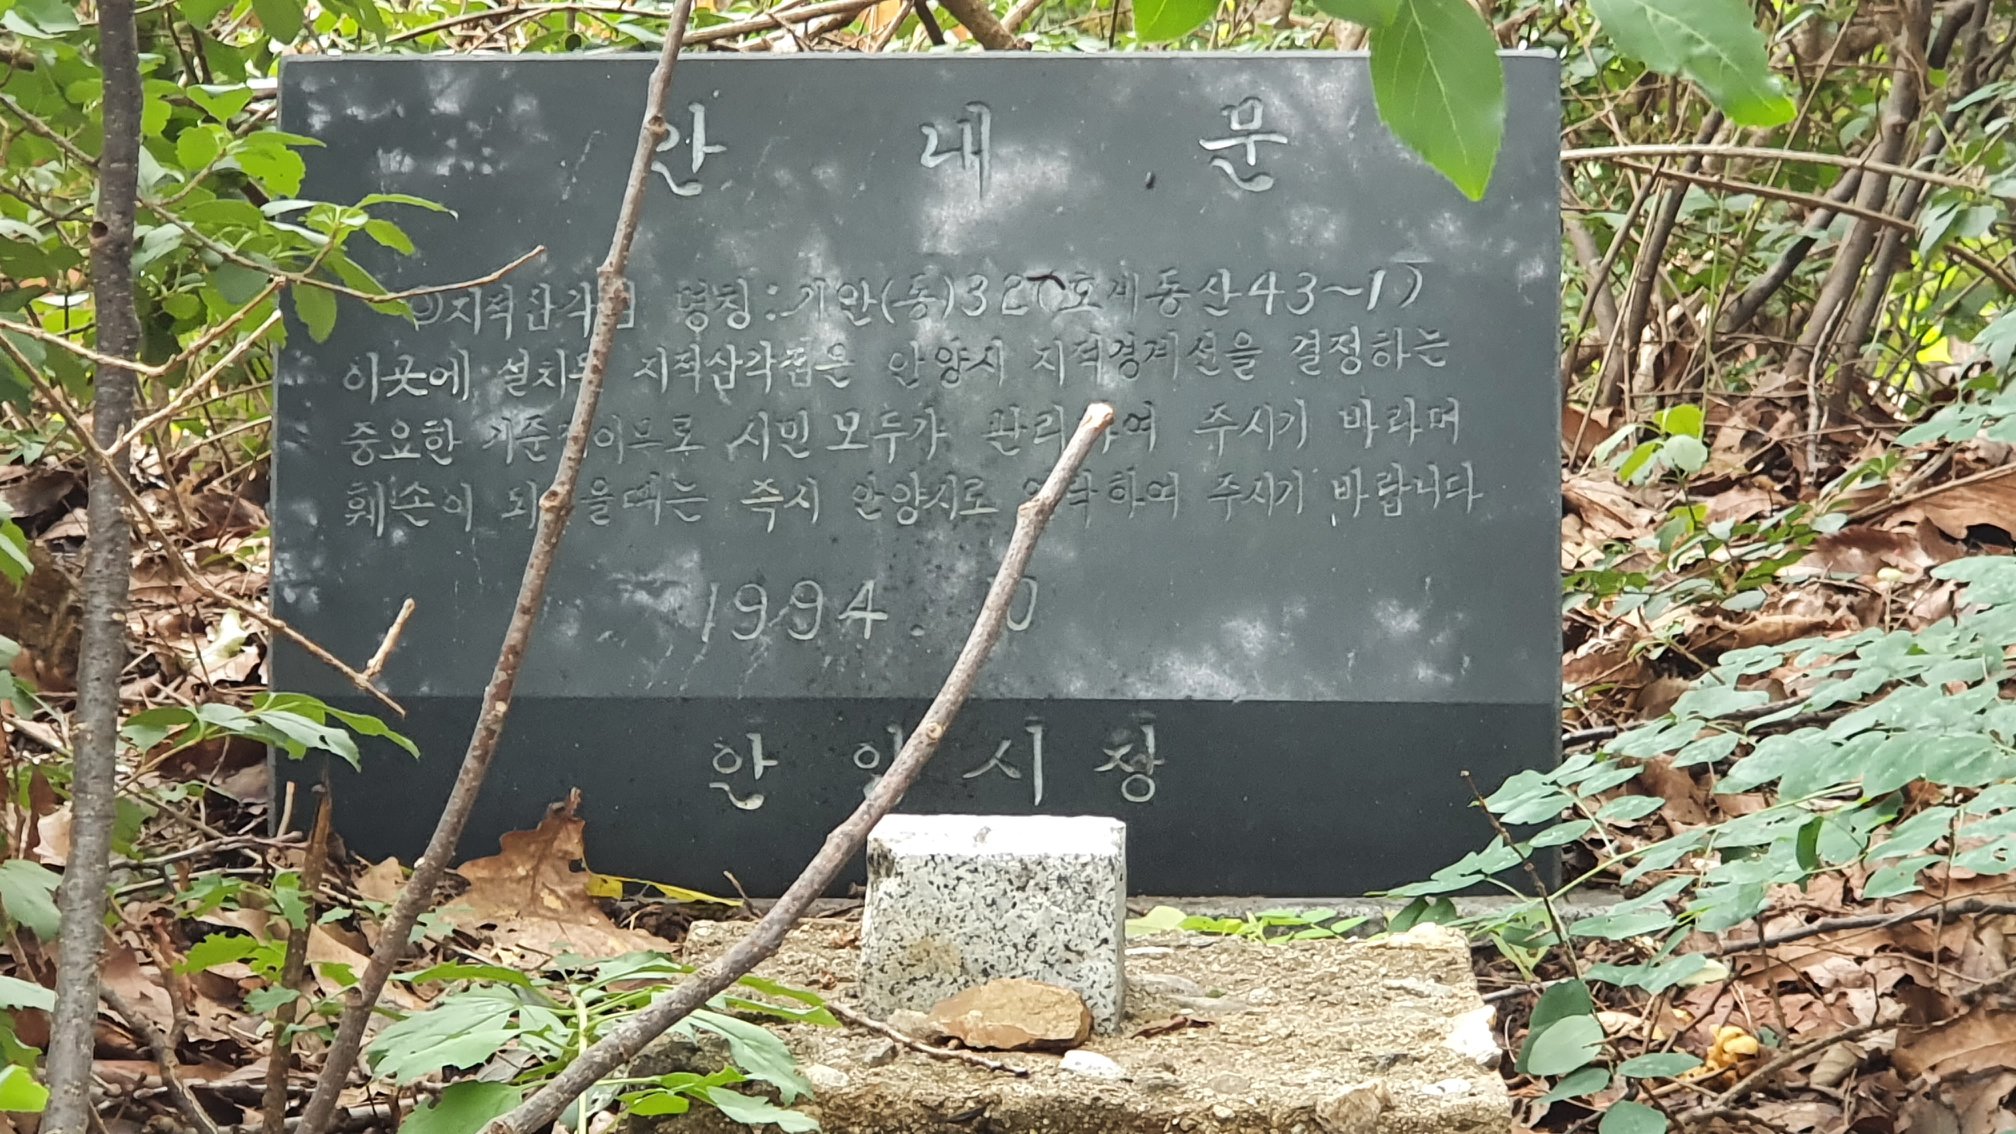 안 내 문
지적삼각점 명칭:경안(동)32(호계동산43~1)
이곳에 설치된 지적삼각점은 안양시 지적경계선을 결정하는
중요한 기준점이므로 시민 모두가 관리하여 주시기 바라며
훼손이 되었을때는 즉시 안양시로 연락하여 주시기 바랍니다
1994. 10
안 양 시 장